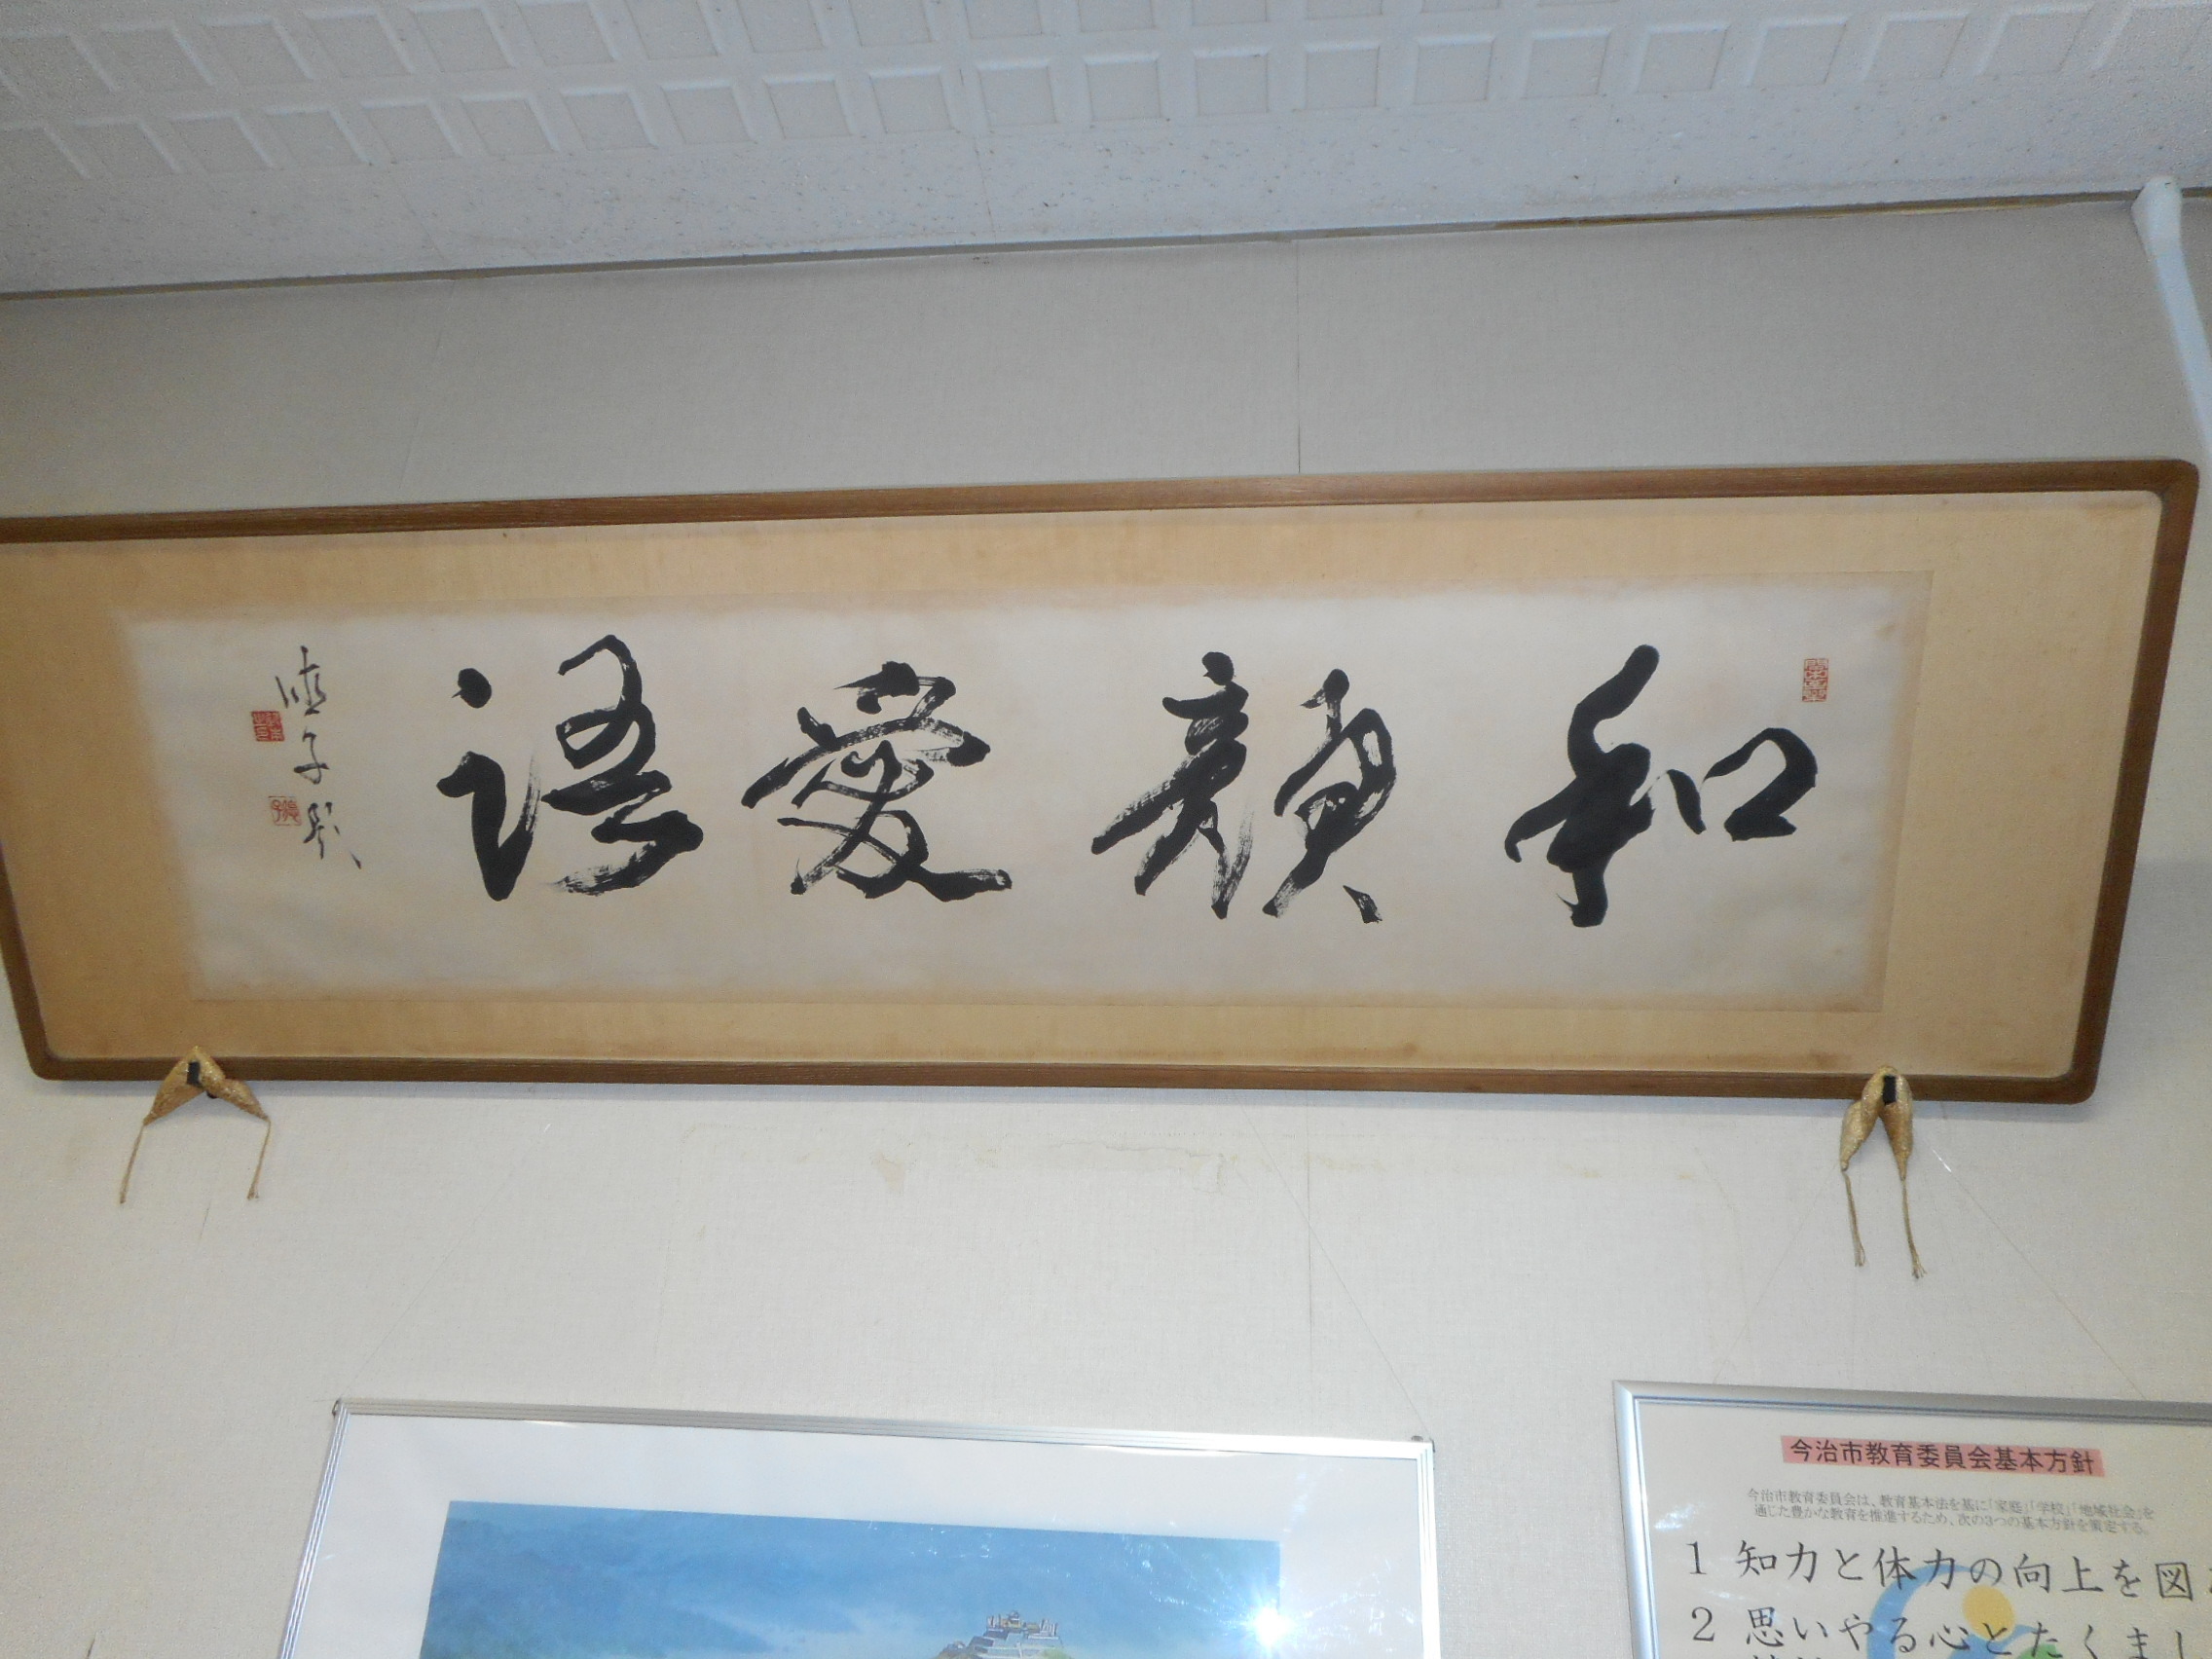 和顔愛語
今治市教育委員会基本方針
今治市教育委員会は、教育基本法を基に「家庭」「学校」「地域社会」を
通じた豊かな教育を推進するため、次の3つの基本方針を策定する。
1 知力と体力の向上を図
2 思いやる心とたくまし